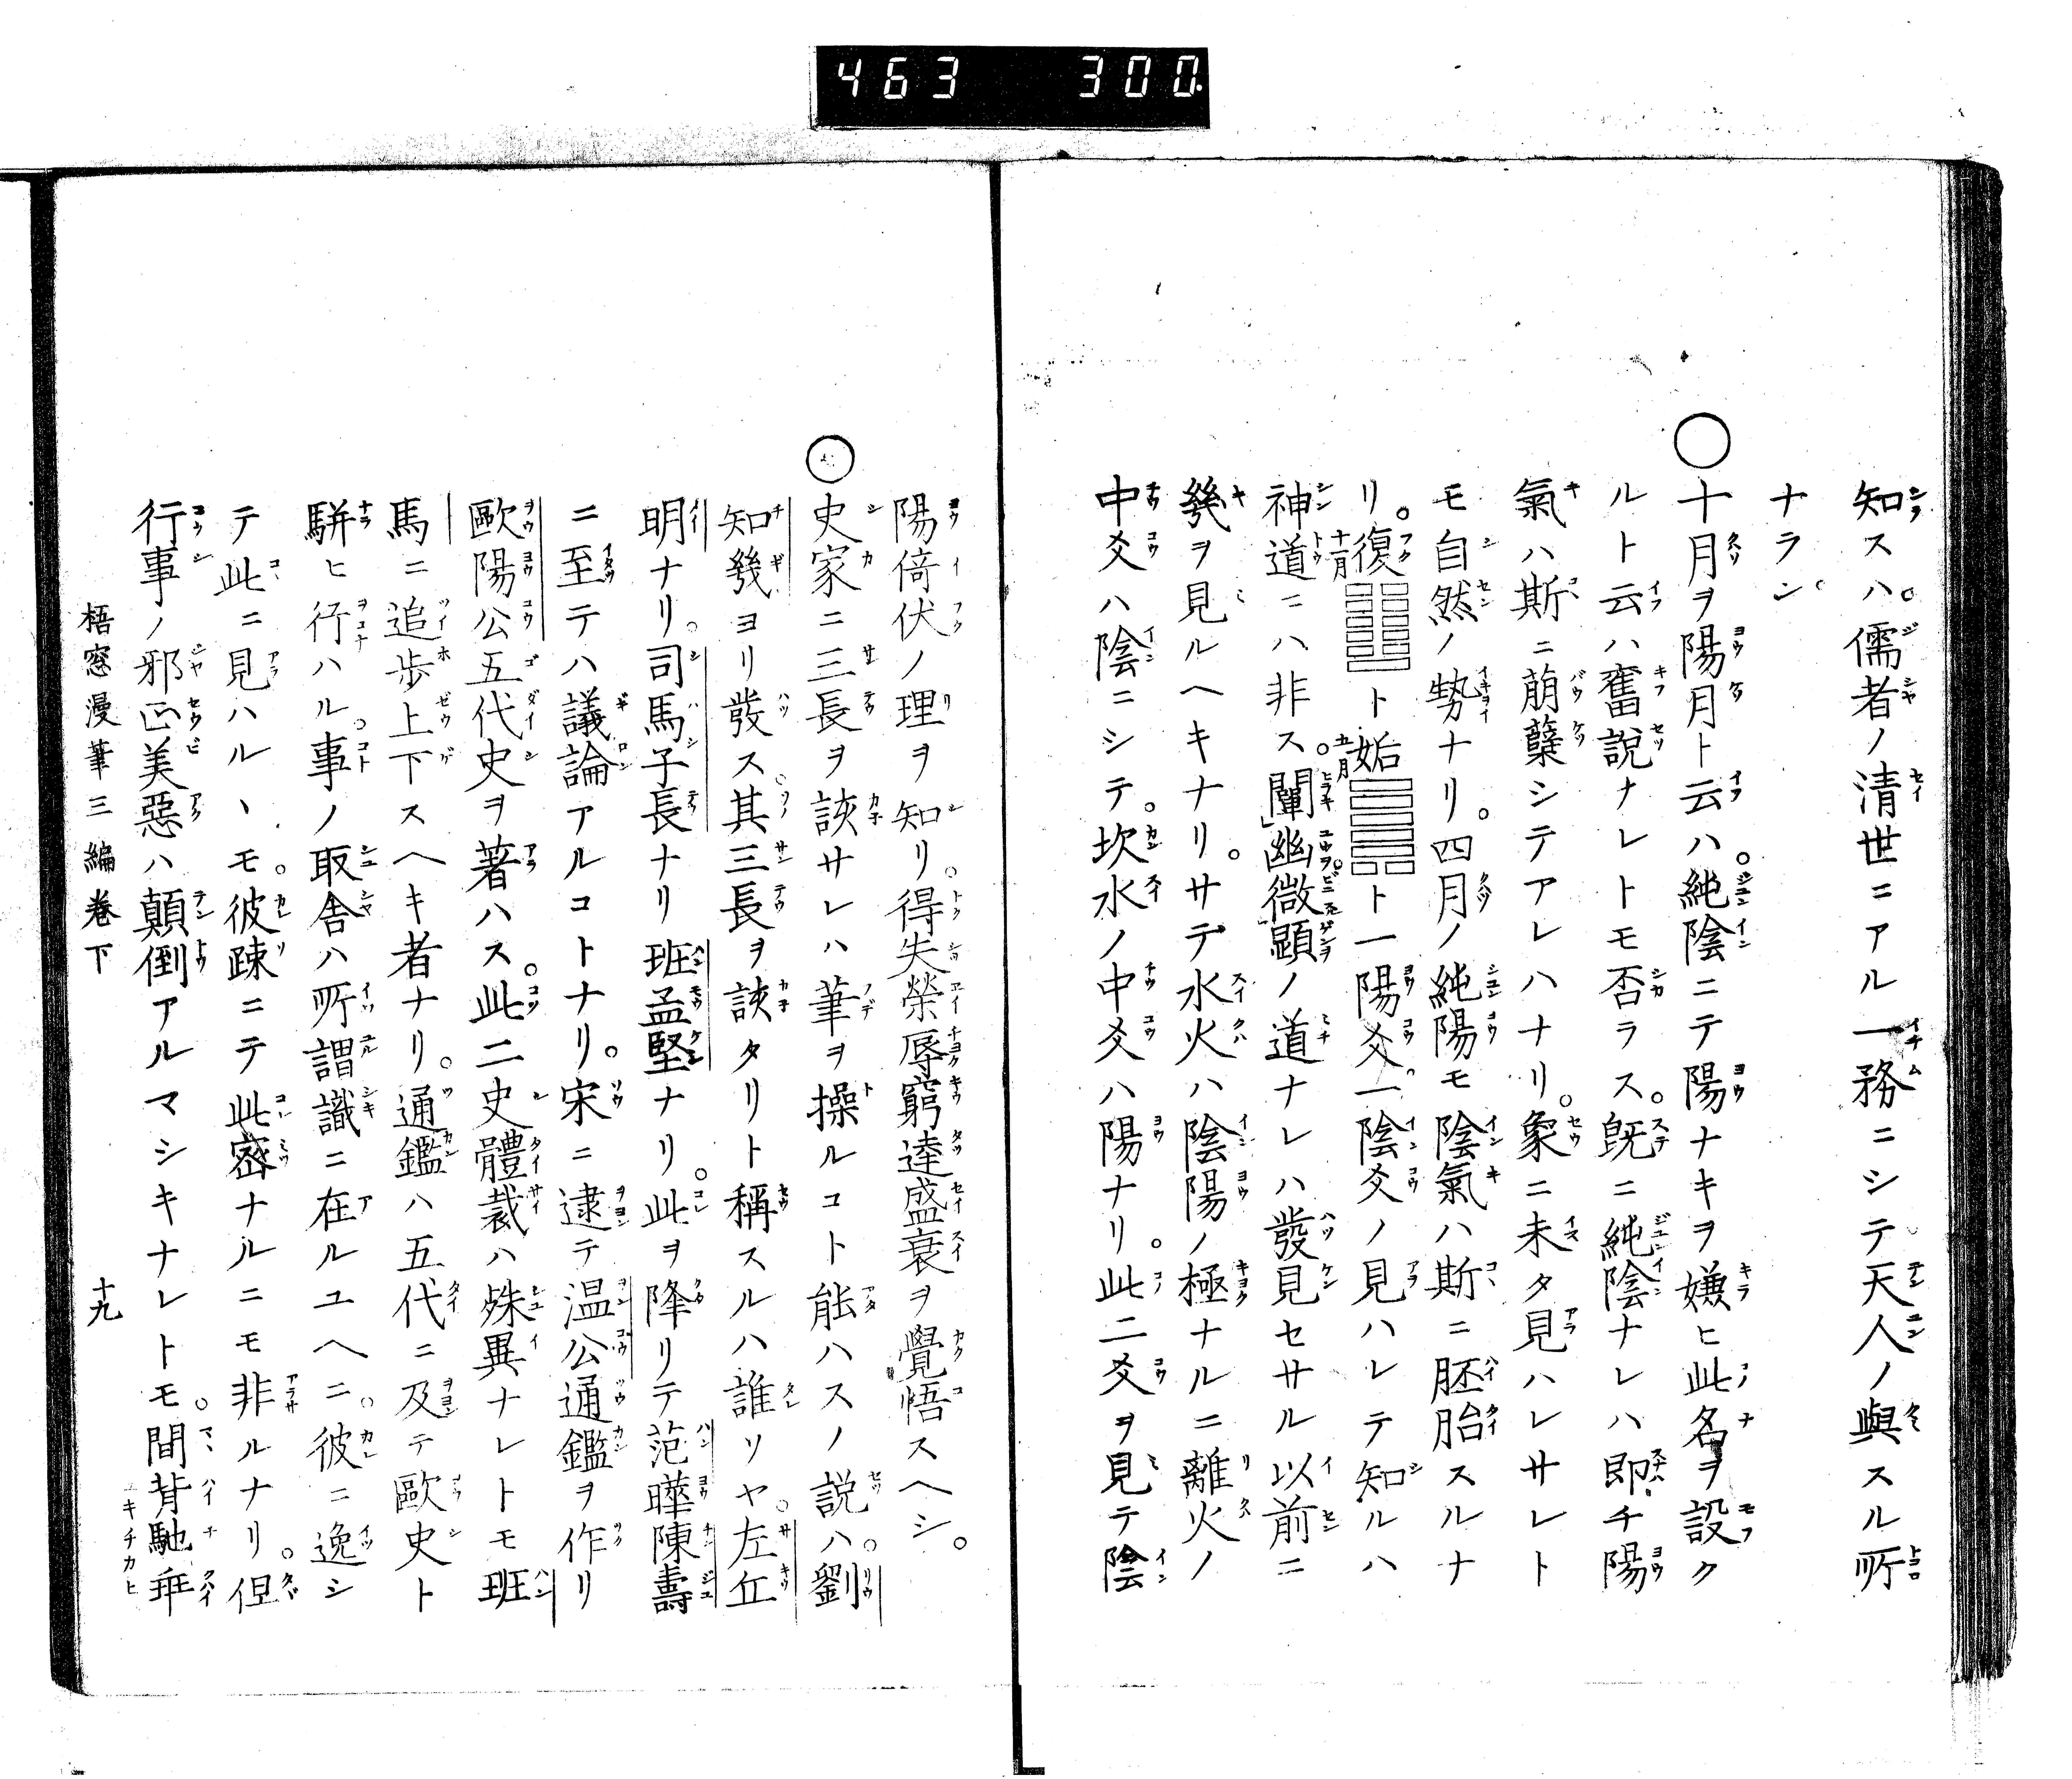 463 300
知スハ。儒者ノ清世ニアル一務ニシテ。天人ノ與スル所
ナラン。
○十月ヲ陽月ト云ハ。純陰ニテ陽ナキヲ嫌ヒ此名ヲ設ク
ルト云ハ舊說ナレトモ否ラス。旣ニ純陰ナレハ即チ陽
氣ハ斯ニ萠蘖シテアレハナリ。象ニ未タ見ハレサレト
モ自然ノ勢ナリ。四月ノ純陽モ陰氣ハ斯ニ胚胎スルナ
リ。復十一月䷗ト姤五月䷫ト一陽爻。一陰爻ノ見ハレテ知ルハ
神道ニハ非ス。闡幽微顯ノ道ナレハ發見セサル以前ニ
幾ヲ見ルヘキナリ。サテ水火ハ陰陽ノ極ナルニ離火ノ
中爻ハ陰ニシテ。坎水ノ中爻ハ陽ナリ。此二爻ヲ見テ陰
陽倚伏ノ理ヲ知リ。得失榮辱窮達盛衰ヲ覺悟スヘシ。
○史家ニ三長ヲ該サレハ筆ヲ操ルコト能ハスノ説ハ。劉
知幾ヨリ發ス。其三長ヲ該タリト稱スルハ誰ソヤ。左丘
明ナリ。司馬子長ナリ班孟堅ナリ。此ヲ降リテ范曄陳壽
ニ至テハ議論アルコトナリ。宋ニ逮テ温公通鑑ヲ作リ
歐陽公五代史ヲ著ハス。此二史體裁ハ殊異ナレトモ班
馬ニ追歩上下スヘキ者ナリ。通鑑ハ五代ニ及テ歐史ト
駢ヒ行ハル。事ノ取舎ハ所謂識ニ在ルユヘニ。彼ニ逸シ
テ此ニ見ハルヽモ。彼疎ニテ此密ナルニモ非ルナリ。但
行事ノ邪正美惡ハ顛倒アルマシキナレトモ。間背馳乖
梧窓漫筆三編卷下 十九